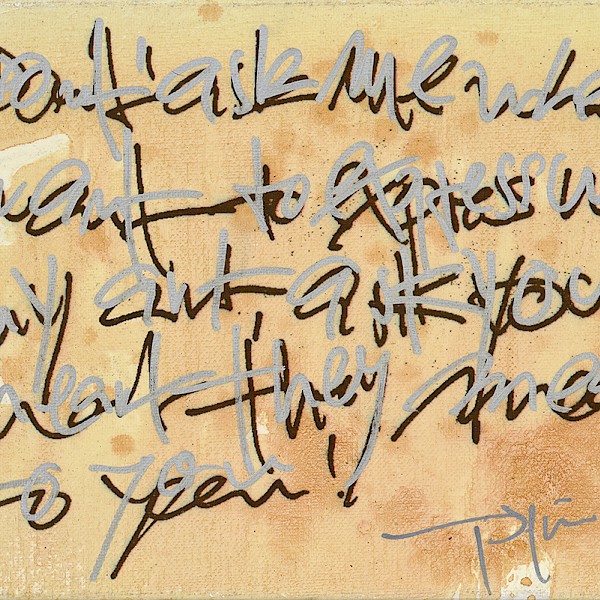 Dont' ask me wha
want to express w
my art ask you
heart they mea
to you!